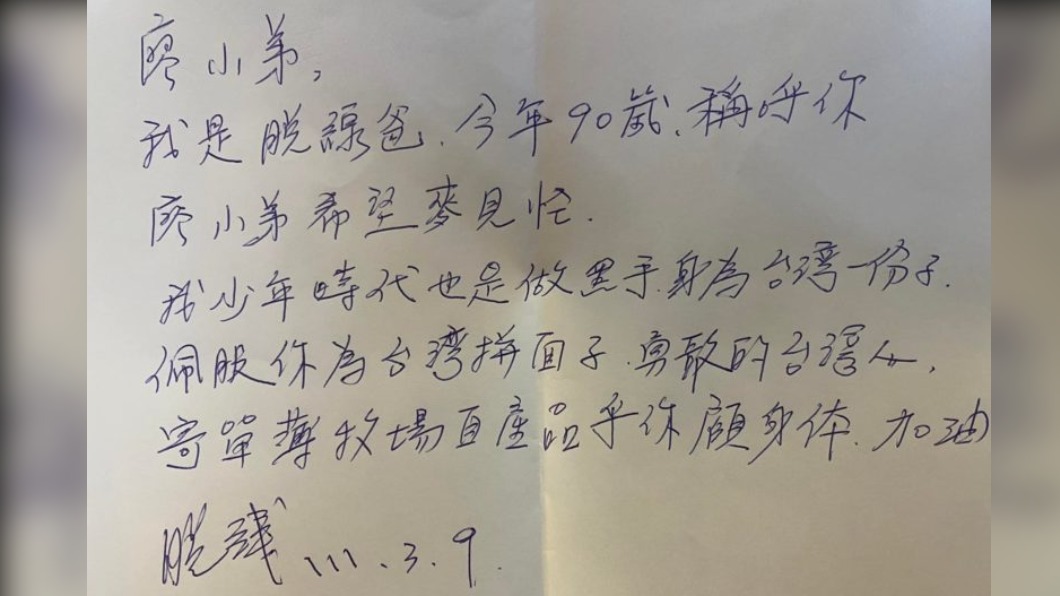 廖小弟,
我是脱線爸.今年90歲.稱呼你
廖小弟希望麥見怪.
我少年時代也是做黑手.身為台湾一份子.
佩服你為台湾拼面子.勇敢的台湾人,
寄單薄牧場自產品乎你顧身体.加油
脱線 111.3.9.